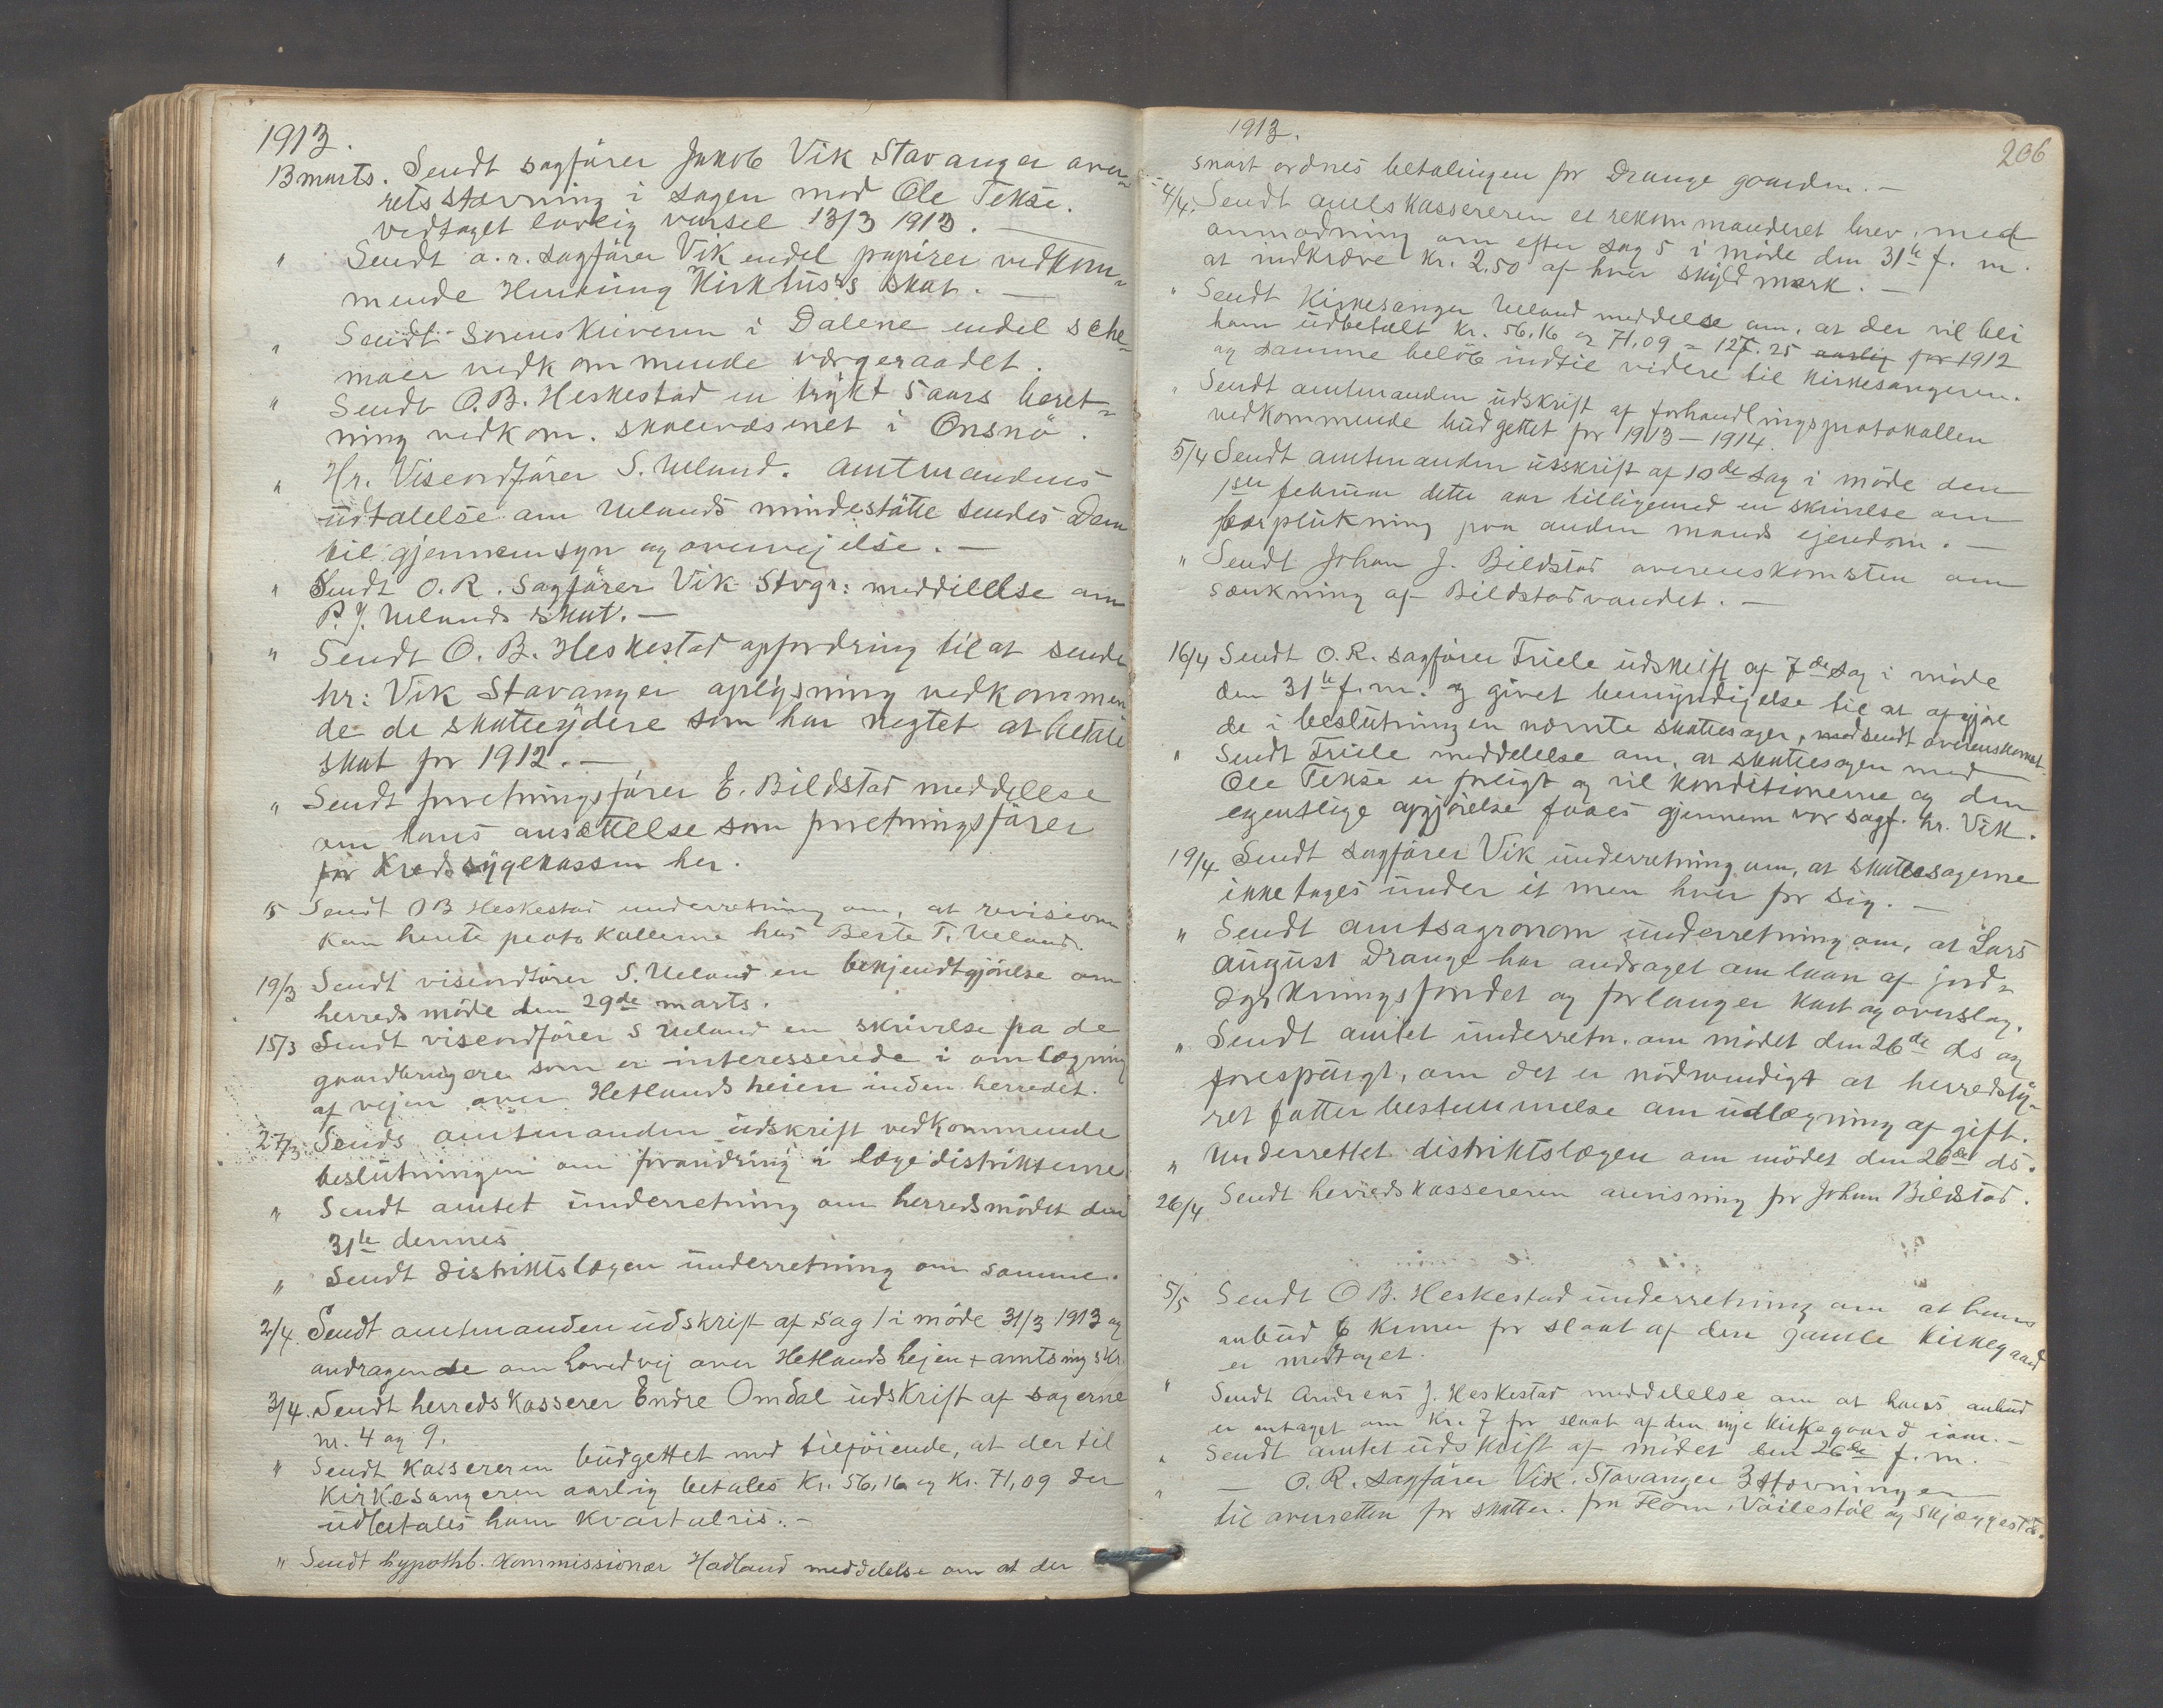 1913.
13 marts. Sendt sagfører Jakob Vik Stavanger over-
retsstævning i sagen mod Ole Tekse.
vedtaget lovlig varsel 13/3 1913. —
" Sendt o.r. sagfører Vik endel papirer vedkom-
mende Henning Kirkhus's skat. —
" Sendt Sorenskriveren i Dalene endel sche-
maer vedkommende værgeraadet.
" Sendt O.B. Heskestad en trykt 5 aars beret-
ning vedkom. skolevæsenet i Onsnø.
" Hr. Viseordfører S. Ueland. Amtmandens
udtalelse om Uelands mindestøtte sendes Dem
til gjennemsyn og overvejelse. —
" Sendt O.R. Sagfører Vik Stvgr: meddelelse om
P.J. Uelands skat. —
" Sendt O.B. Heskestad opfordring til at sende
hr: Vik Stavanger oplysning vedkommen-
de de skatteydere som har negtet at betale
skat for 1912. —
" Sendt forretningsfører E. Bildstad meddelelse
om hans ansættelse som forretningsfører
for Kredssygekassen her.
15 Sendt O B Heskestad underretning om, at revisionen
kan hente protokollerne hos Berte T. Ueland.
19/3 Sendt viseordfører S. Ueland en bekjendtgjørelse om
herredsmøde den 29de marts.
15/3 Sendt viseordfører S Ueland en skrivelse fra de
gaardbrugere som er interesserede i omlægning
af vejen over Hetlandsheien inden herredet.
27/3. Sends amtmanden udskrift vedkommende
beslutningen om forandring i lægedistrikterne
" Sendt amtet underretning om herredsmødet den
31te dennes
" Sendt distriktslægen underretning om samme.
2/4. Sendt amtmanden udskrift af sag 1 i møde 31/3 1913 og
andragende om hovedvej over Hetlandshejen + amtsing skr.
3/4. Sendt herredskasserer Endre Omdal udskrift af sagerne
nr. 4 og 9.
" Sendt kassereren budgettet med tilføiende, at der til
Kirkesangeren aarlig betales Kr. 56,16 og Kr. 71,09 der
udbetales ham kvartalvis. —
" Sendt hypothb. kommissionær Hadland meddelelse om at der
1913.
206
snart ordnes betalingen for Drange gaarden. —
4/4. Sendt amtskassereren et rekommanderet brev, med
anmodning om efter sag 5 i møde den 31te f. m.
at indkræve Kr. 2.50 af hver skyldmark. —
" Sendt Kirkesanger Ueland meddelelse om, at der vil bli
ham udbetalt Kr. 56.16 og 71,09 = 127.25 aarlig for 1912
og samme beløb indtil videre til kirkesangeren.
" Sendt amtmanden udskrift af forhandlingsprotokollen
vedkommende budgettet for 1913—1914.
5/4 Sendt amtmanden udskrift af 10de sag i møde den
1ste februar dette aar tilligemed en skrivelse om
bærplukning paa anden mands ejendom. —
" Sendt Johan J. Bildstad overenskomsten om
sænkning af Bildstadvandet. —
16/4 Sendt O.R. sagfører Friele udskrift af 7de sag i møde
den 31te f.m. og givet bemyndigelse til at afgjøre
de i beslutningen nævnte skattesager, medsendt overenskomst.
" Sendt Friele meddelelse om, at skattesagen med
Ole Tekse er forligt og vil konditionerne og den
egentlige opgjørelse faaes gjennem vor sagf. hr. Vik.
19/4. Sendt sagfører Vik underretning om, at skattesagerne
ikke tages under et men hver for sig. —
" Sendt amtsagronom underretning om, at Lars
August Drange har andraget om laan af jord-
dyrkningsfondet og forlanger kart og overslag.
" Sendt amtet underretn. om mødet den 26de ds og
forespurgt, om det er nødvendigt at herredsty-
ret fatter bestemmelse om udlægning af gift.
" Underrettet distriktslægen om mødet den 26de ds.
26/4 Sendt herredskassereren anvisning for Johan Bildstad.
5/5 Sendt O B. Heskestad underretning om at hans
anbud 6 Kroner for slaat af den gamle kirkegaard
er modtaget.
" Sendt Andreas J. Heskestad meddelelse om at hans anbud
er antaget om Kr. 7 for slaat af den nye kirkegaard iaar. —
" Sendt amtet udskrift af mødet den 26de f. m.
" — O.R. sagfører Vik. Stavanger 3 stævninger
til overretten for skatter. fra Flom, Vailestøl og Skjæggestad.